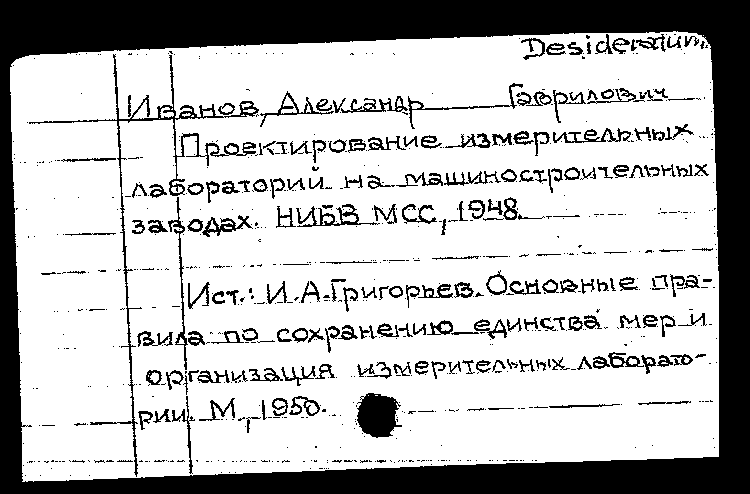 Desideratum
Иванов, Александр Гаврилович
Проектирование измерительных
лабораторий на машиностроительных
заводах. НИБВ МСС, 1948.
Ист.: И.А.Григорьев. Основные пра-
вила по сохранению единства мер и
организация измерительных лаборато-
рии. М., 1950.